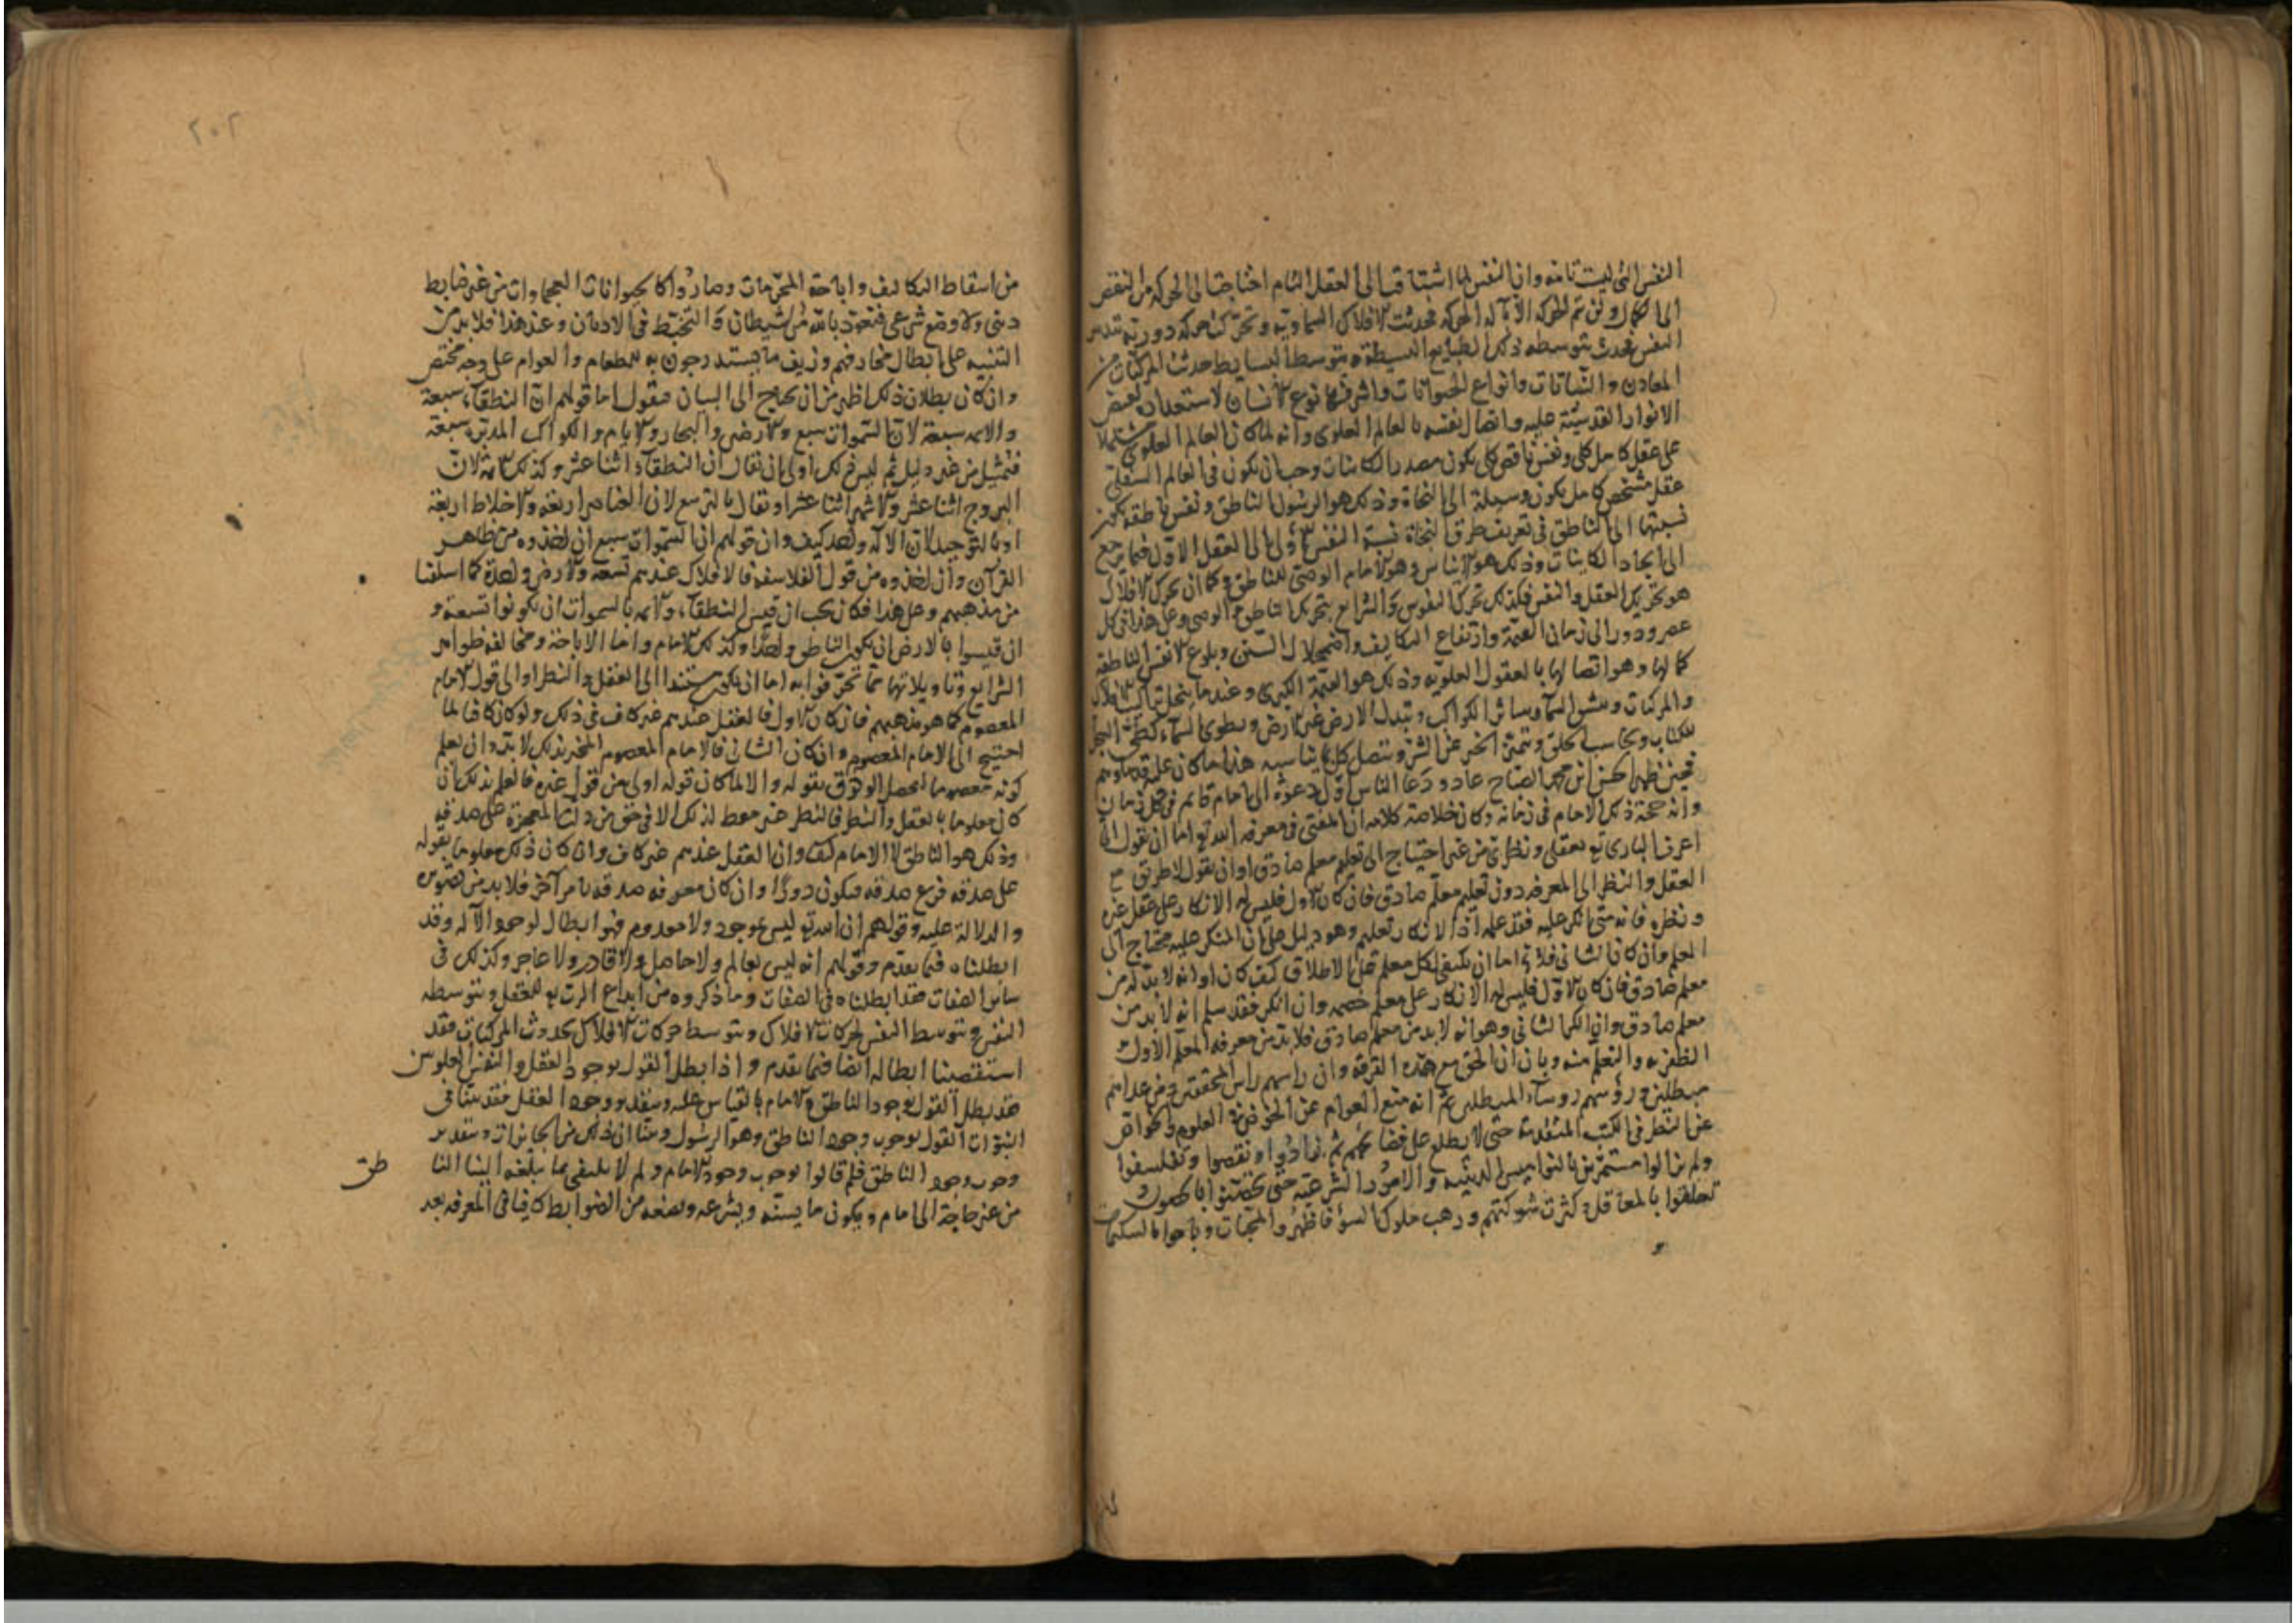 النفس التي ليست تامة وان النفس لما اشتاقت الى العقل التام احتاجت الى الحركة من النقص
الى الكمال ولن تتم الحركة الا بآلة الحركة فحدثت الافلاك السماوية وتحركت حركة دورية بتدبير
النفس فحدث بتوسطه ذلك الطبايع البسيطة وبتوسط البسايط حدثت المركبات من
المعادن والنباتات وانواع الحيوانات واشرفها نوع الانسان لاستعداده لفيض
الانوار القدسية عليه واتصال نفسه بالعالم العلوى وانه لما كان العالم العلوى مشتملا
على عقل كامل كلى ونفس ناقص كلى يكون مصدر الكاينات وجب ان يكون فى العالم السفلى
عقل مشخص كامل يكون وسيلة الى النجاة وذلك هو الرسول الناطق ونفس ناطقة يكون
نسبتها الى الناطق فى تعريف طرق النجاة نسبة النفس الاولى الى العقل الاول فيما يرجع
الى ايجاد الكاينات وذلك هو الاساس وهو الامام الوصى للناطق وكما ان تحرك الافلاك
هو بتحريك العقل والنفس فكذلك تحرك النفوس والشرايع بتحريك الناطق والوصى وعلى هذا فى كل
عصر ودور الى زمان القيمة وارتفاع التكاليف واضمحلال السنن وبلوغ الانفس الناطقة
كمالها وهو اتصالها بالعقول العلوية وذلك هو القيمة الكبرى وعندها ينحل تراكيب الافلاك
والمركبات وينشق السماء وتتناثر الكواكب وتبدل الارض غير الارض وتطوى السماء كطى السجل
للكتاب ويحاسب الخلق ويتميز الخير عن الشر ويتصل كل بما يناسبه هذا ما كان عليه قدماؤهم
فحين ظهر الحسن ابن محمد الصباح عاد ودعا الناس اول دعوة الى امام قايم فى كل زمان
وانه حجة ذلك الامام فى زمانه وكان خلاصة كلامه ان المفتى فى معرفة الله تع اما ان يقول انى
اعرف البارى تع بعقلى ونظرى من غير احتياج الى تعليم معلم صادق او ان يقول لا طريق مع
العقل والنظر الى المعرفة دون تعليم معلم صادق فان كان الاول فليس له الانكار على عقل غيره
ونظره فانه متى انكر عليه فقد علمه اذ الانكار تعليم وهو دليل على ان المنكر عليه محتاج الى
المعلم وان كان الثانى فلا يخ اما ان يكتفى بكل معلم على الاطلاق كيف كان او انه لا بد له من
معلم صادق فان كان الاول فليس له الانكار على معلم خصمه وان انكر فقد سلم انه لا بد من
معلم صادق وان كان الثانى وهو انه لا بد من معلم صادق فلا بد من معرفة المعلم الاول
الظفر به والتعلم منه وبان ان الحق مع هذه الفرقة وان راسهم راس المحققين ومن عداهم
مبطلين ورؤسهم روساء المبطلين ثم انه منع العوام عن الخوض فى العلوم والخواص
عن النظر فى الكتب المتقدمة حتى لا يطلع على فضائحهم ثم زادوا ونقصوا وتفلسفوا
ولم يزالوا مستهزئين بالنواميس الدينية والامور الشرعية حتى تحصنوا بالحصون و
تعلقوا بالمعاقل كثرت شوكتهم ورهب ملوك السوء فاظهروا
من اسقاط التكاليف واباحة المحرمات وصاروا كالحيوانات العجماوات من غير ضابط
دينى ولا وضع شرعى فنعوذ بالله من الشيطان والتخبط فى الاديان وعند هذا فلا بد من
التنبيه على ابطال مخارفهم وتزييف ما يستدرجون به للطغام والعوام على وجه مختصر
وان كان بطلان ذلك اظهر من ان يحتاج الى البيان فنقول اما قولهم ان النطقاء سبعة
والائمه سبعة لان السموات سبع والارضين والبحار والايام والكواكب المدبرة سبعة
فتمثيل من غير دليل ثم ليس ذلك اولى من ان يقال ان النطقاء اثنا عشر وكذلك الائمة لان
البروج اثنا عشر والاشهر اثنا عشر او يقال بالتربيع لان العناصر اربعة والاخلاط اربعة
او بالتوحيد لان الاله واحد كيف وان قولهم ان السموات سبع ان اخذوه من ظاهر
القرآن وان اخذوه من قول الفلاسفة فالافلاك عندهم تسعة والارض واحدة كما اسلفنا
من مذهبهم وعلى هذا فكان يجب ان قيس النطقاء والائمه بالسموات ان يكونوا تسعة و
ان قيسوا بالارض ان يكون الناطق واحدا وكذلك الامام واما الاباحة ومخالفة ظواهر
الشرايع وتاويلاتها مما تخرفوا به اما ان يكون مستندا الى العقل والنظر او الى قول الامام
المعصوم كما هو مذهبهم فان كان الاول فالعقل عندهم غير كاف فى ذلك ولو كان كافيا لما
احتيج الى الامام المعصوم وان كان الثانى فالامام المعصوم المخبر بذلك لا بد وان يعلم
كونه معصوما ليحصل الوثوق بقوله والا لما كان قوله اولى من قول غيره فالعلم بذلك ان
كان معلوما بالعقل والنظر فالنظر غير معط لذلك الا فى حق من دلت المعجزة على صدقه
وذلك هو الناطق لا الامام كيف وان العقل عندهم غير كاف وان كان ذلك معلوما بقوله
على صدقه فرع صدقه فيكون دورا وان كان معرفة صدقه بامر آخر فلا بد من تصويره
والدلالة عليه وقولهم ان الله تع ليس بموجود ولا معدوم فهو ابطال لوجود الاله وقد
ابطلناه فيما تقدم وقولهم انه ليس بعالم ولا جاهل ولا قادر ولا عاجز وكذلك فى
سائر الصفات فقد ابطلناه فى الصفات وما ذكروه من ابداع الرب تع للعقل وبتوسطه
النفس وبتوسط النفس لحركات الافلاك وبتوسط حركات الافلاك لحدوث المركبات فقد
استقصينا ابطاله ايضا فيما تقدم واذا بطل القول بوجود العقل والنفس العلويين
فقد بطل القول بوجود الناطق والامام بالقياس عليه وبتقدير وجود العقل فقد بينا فى
النبوات القول بوجوب وجود الناطق وهو الرسول وبينا ان ذلك من الجائزات وبتقدير
وجوب وجود الناطق فلم قالوا بوجوب وجود الامام ولم لا يكتفى بما يبلغه الينا النا
طق
من غير حاجة الى امام ويكون ما يسنه ويشرعه ويضعه من الضوابط كافيا فى المعرفة بعد